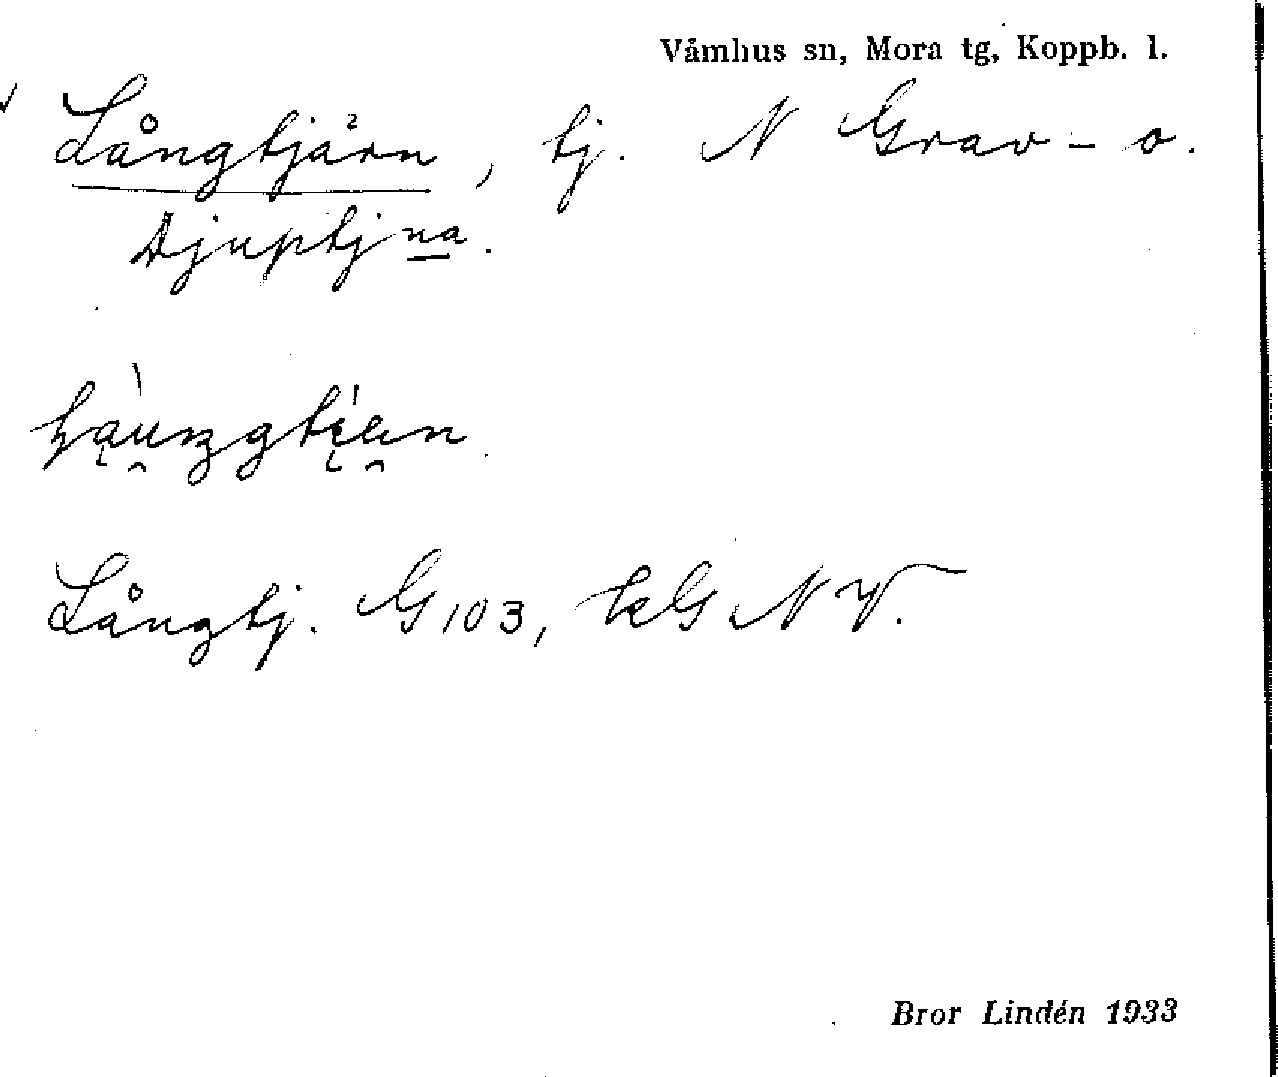 Våmhus sn, Mora tg, Koppb. l.
Långtjärn, tj. N Grav- o.
Djuptjna.
Långtj. G 103, NV.
Bror Lindén 1933